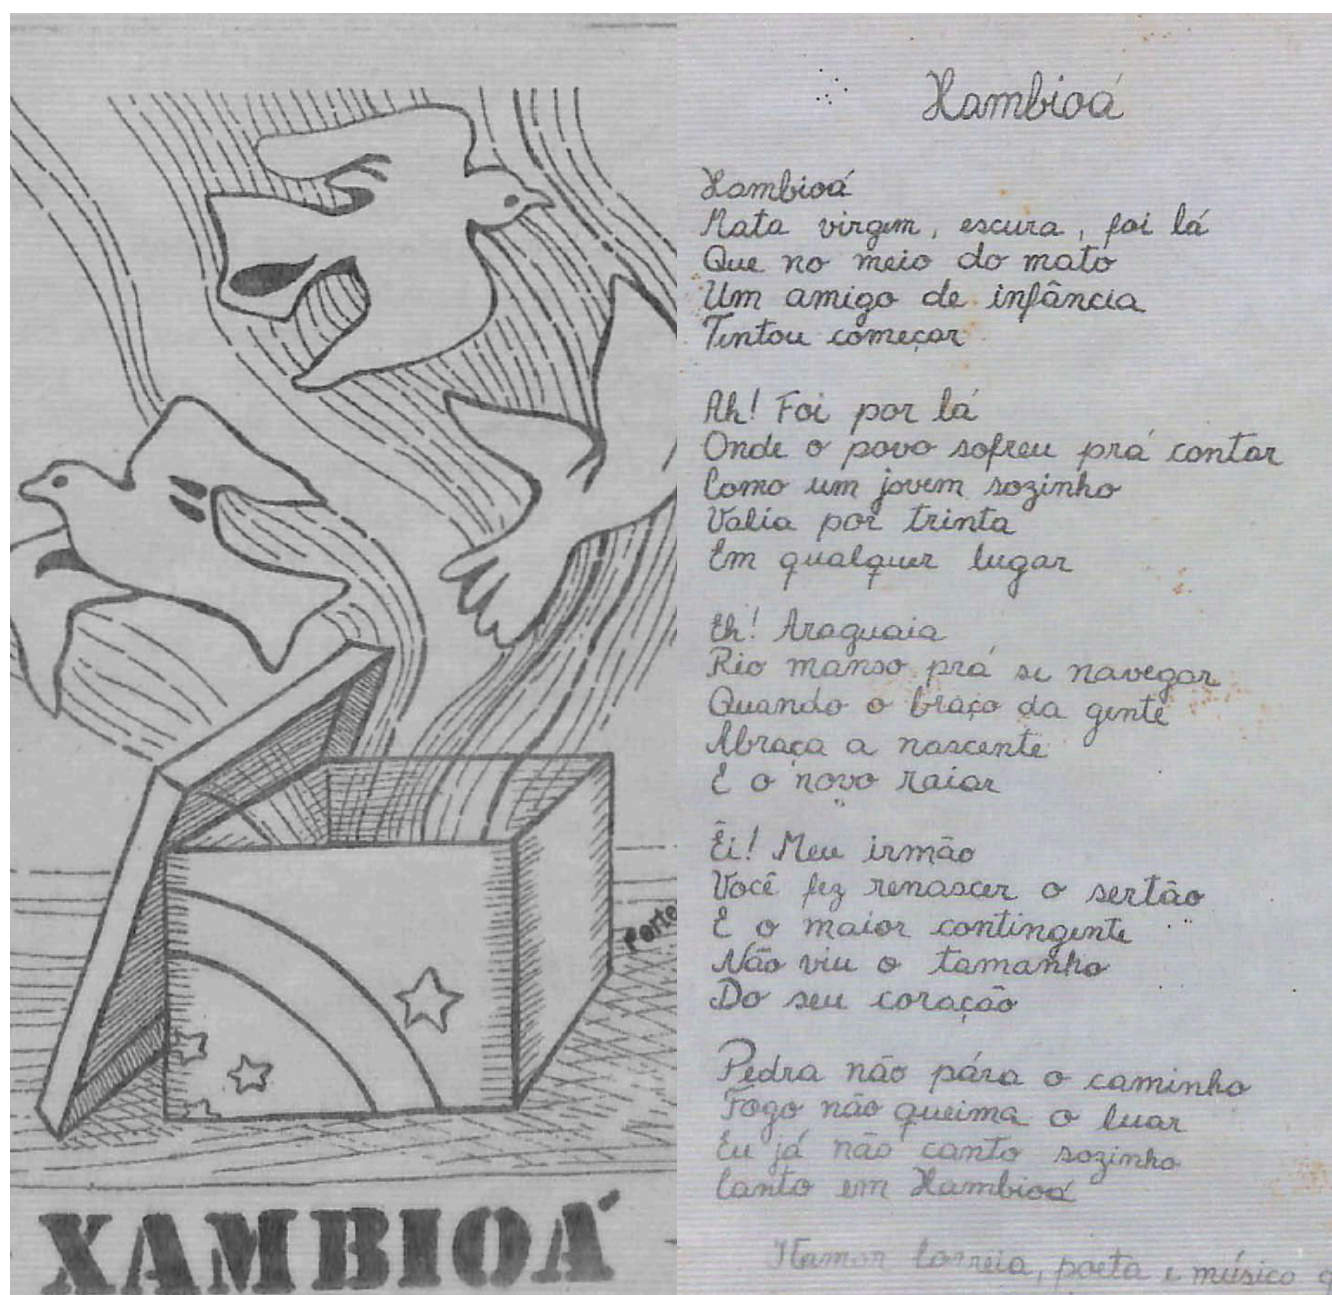 XAMBIOÁ
Xambioá
Xambioá
Mata virgem, escura, foi lá
Que no meio do mato
Um amigo de infância
Tentou começar
Ah! Foi por lá
Onde o povo sofreu prá contar
Como um jovem sozinho
Valia por trinta
Em qualquer lugar
Eh! Araguaia
Rio manso prá se navegar
Quando o braço da gente
Abraça a nascente
E o novo raiar
Êi! Meu irmão
Você fez renascer o sertão
E o maior contingente
Não viu o tamanho
Do seu coração
Pedra não pára o caminho
Fogo não queima o luar
Eu já não canto sozinho
Canto em Xambioá
Correia, poeta e músico